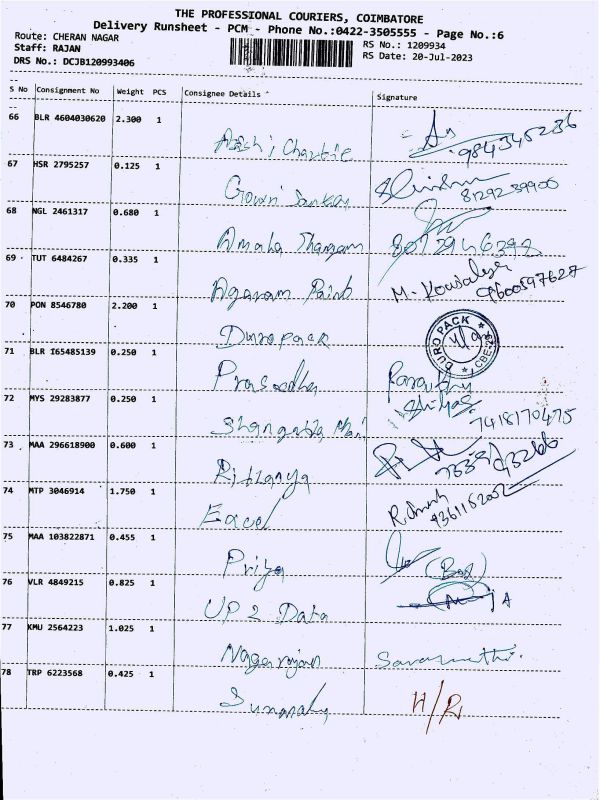 THE PROFESSIONAL COURIERS, COIMBATORE
Delivery Runsheet - PCM - Phone No.:0422-3505555 - Page No.:6
Route: CHERAN NAGAR
RS No.: 1209934
Staff: RAJAN
RS Date: 20-Jul-2023
DRS No.: DCJB120993406
S No Consignment No Weight PCS Consignee Details Signature
66 BLR 4604030620 2.300 1
9843345236
67 HSR 2795257 0.125 1 Gowri Sankar
8129239900
68 NGL 2461317 0.680 1 Amala
69 TUT 6484267 0.335 1 Agaram Paint M. Kowsalya
9600597627
70 PON 8546780 2.200 1 Duropack DURO PACK
71 BLR I65485139 0.250 1
72 MYS 29283877 0.250 1
7418170475
73 MAA 296618900 0.600 1 Rithanya
74 MTP 3046914 1.750 1
9361152002
75 MAA 103822871 0.455 1 Priya
76 VLR 4849215 0.825 1 UP 2 Data
77 KMU 2564223 1.025 1 Nagarajan
78 TRP 6223568 0.425 1 H/R